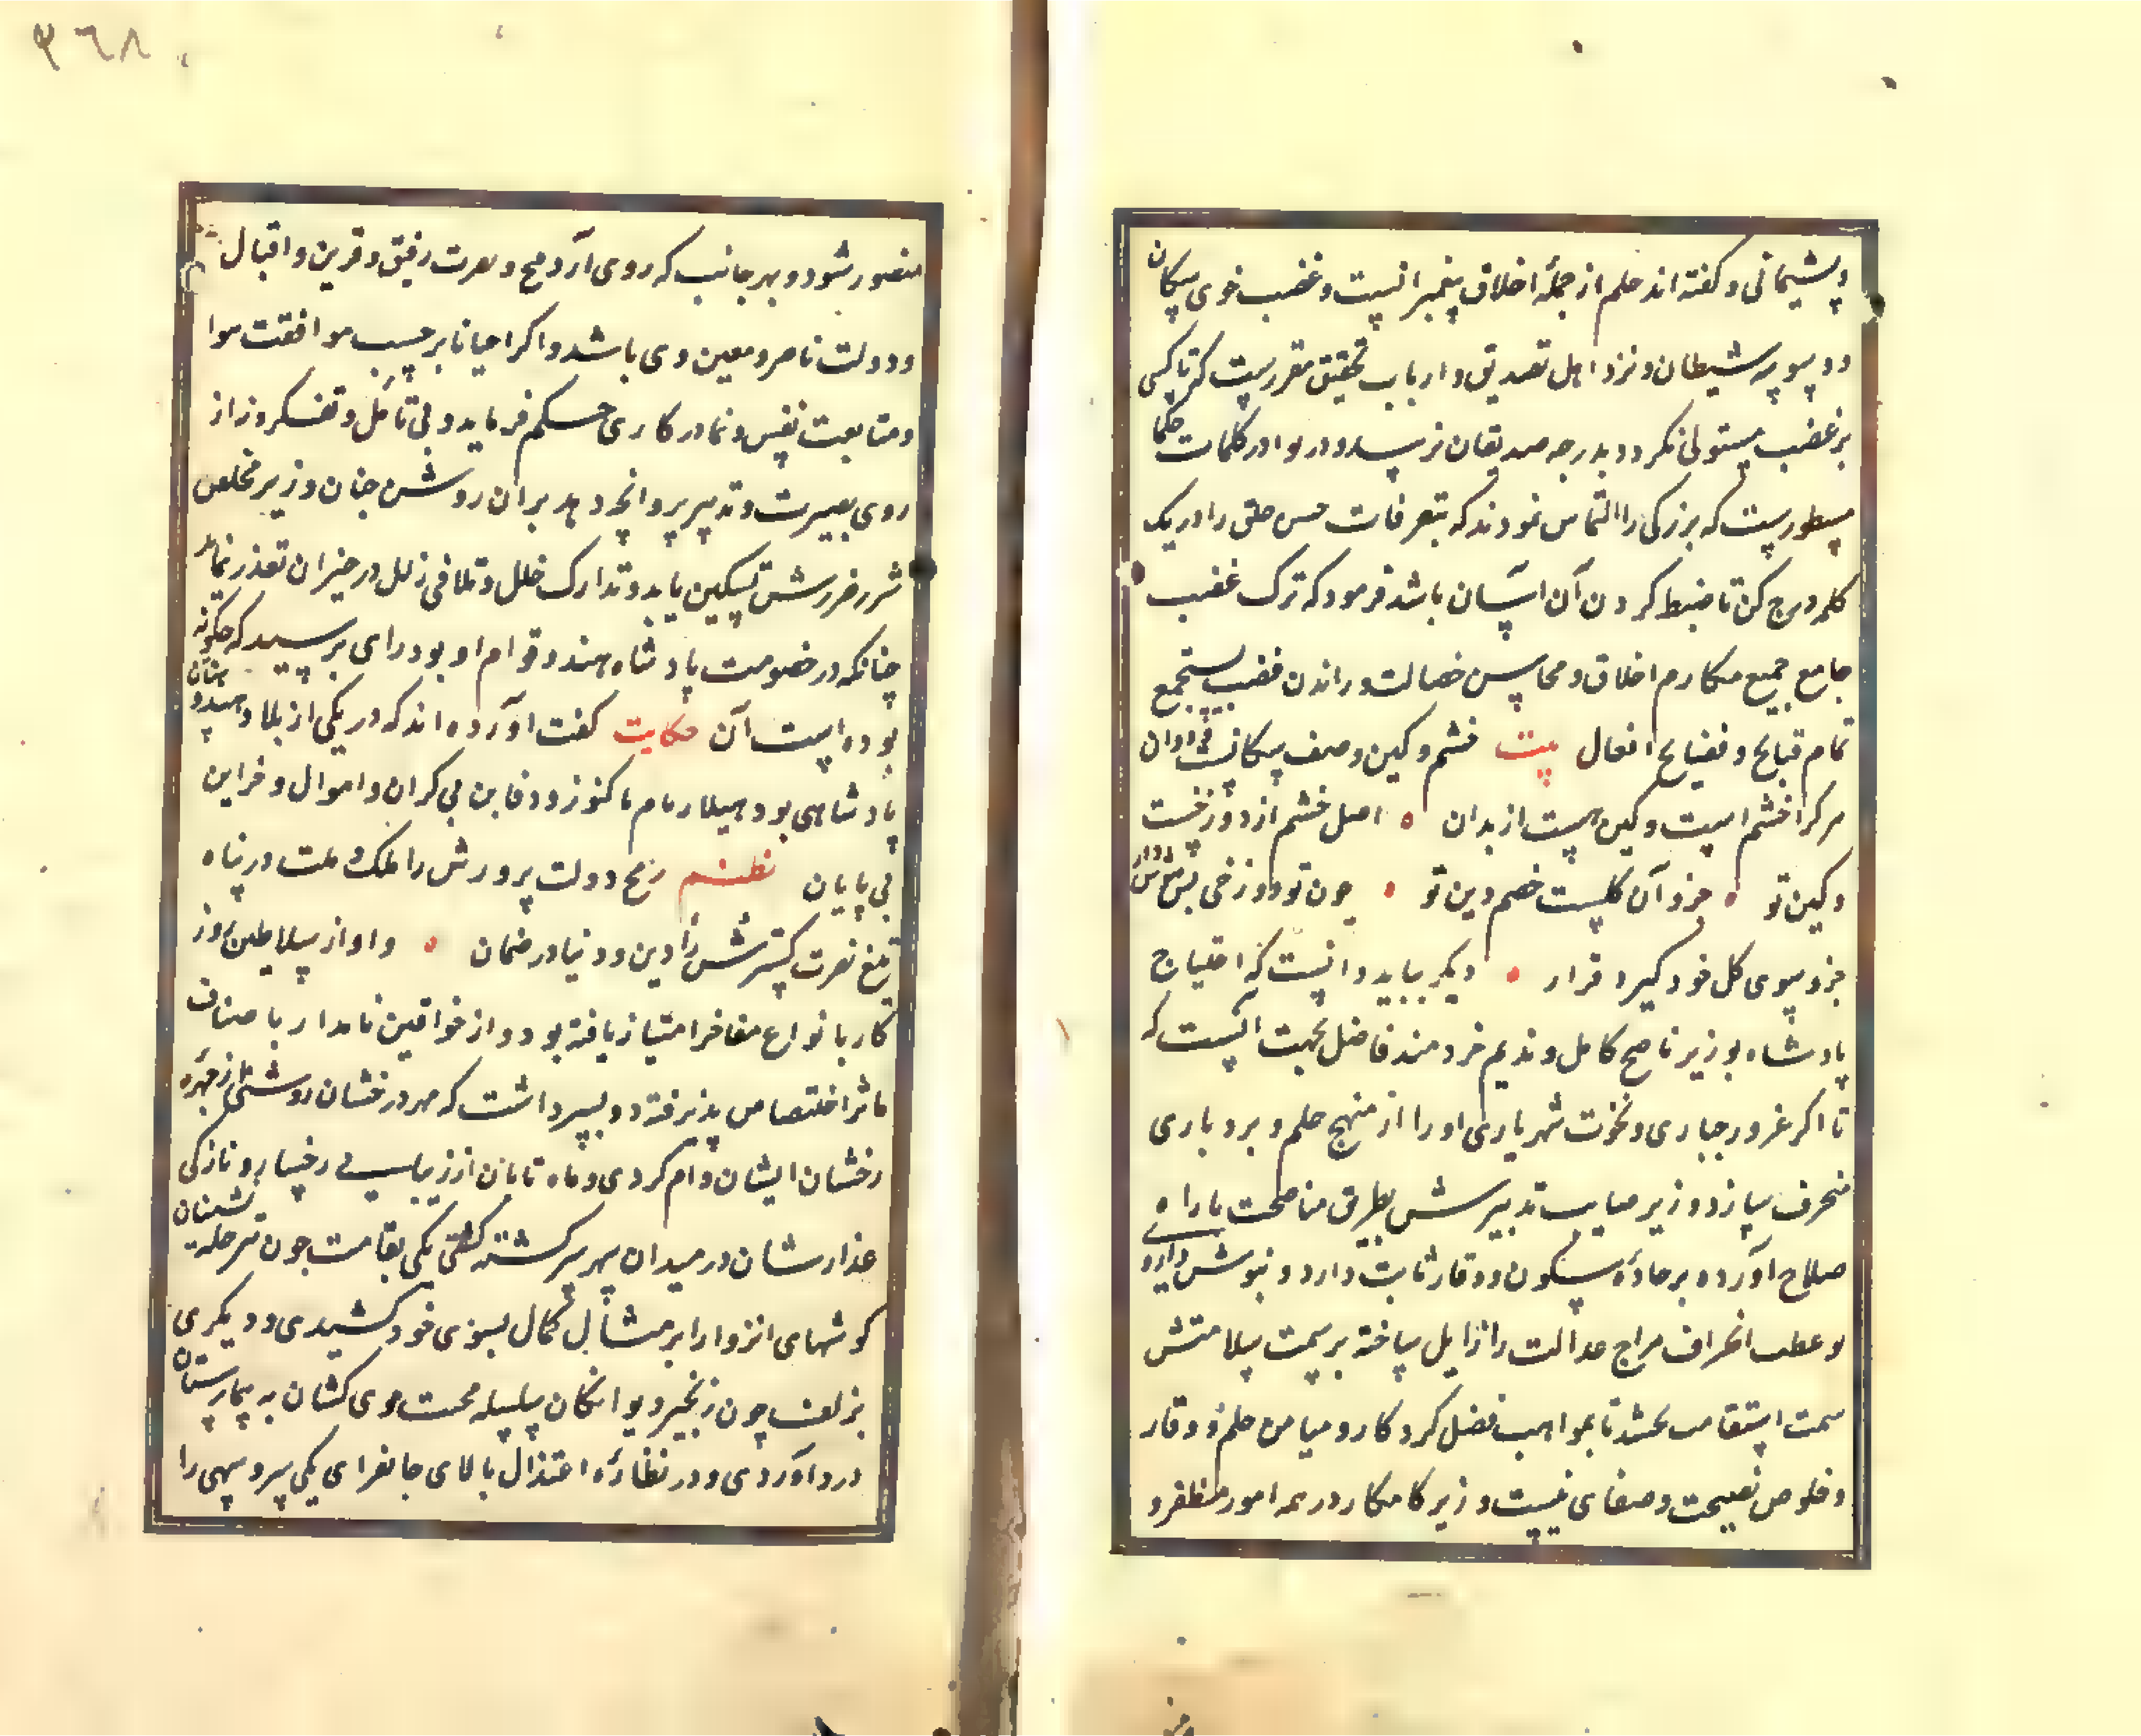 و پشیمانی و گفته اند حلم از جمله اخلاق پیغمبرانست و غضب خوی سکان
و وسوسه شیطان و نزد اهل تصدیق و ارباب تحقیق مقررست که تا کسی
بر غضب مستولی نکردد بدرجه صدیقان نرسد و در نوادر کلمات حکما
مسطورست که بزرکی را التماس نمودند که تصرفات حسن خلق را در یک
کلمه درج کن تا ضبط کردن آن آسان باشد فرمود که ترک غضب
جامع جمیع مکارم اخلاق و محاسن خصالست و راندن غضب مستجمع
تمام قبایح و فضایح افعال بیت خشم و کین وصف سکانست و ددان
هرکرا خشم است و کین هست از بدان اصل خشم از دوزخست
و کین تو جزو آن کلست خصم دین تو چون تو دوزخی پس هوش دار
جزو سوی کل خود کیرد قرار دیکر بباید دانست که احتیاج
پادشاه بوزیر ناصح کامل و ندیم خردمند فاضل بجهت آنست که
تا اکر غرور جباری و نخوت شهریاری او را از منهج حلم و بردباری
منحرف سازد وزیر صایب تدبیرش بطریق مناصحت با راه
صلاح آورده بر جادۀ سکون و وقار ثابت دارد و بنوش داروی
وعظ انحراف مزاج عدالت را زایل ساخته بر سمت سلامتش
سمت استقامت بخشد تا بمواهب فضل کردکار و میامن حلم و وقار
و خلوص نصیحت و صفای نیت وزیر کامکار در همه امور مظفر و
٣٦٨
منصور شود و بهر جانب که روی آرد فتح و نصرت رفیق و قرین و اقبال
و دولت ناصر و معین وی باشد و اکر احیانا برحسب موافقت هوا
و متابعت نفس دغا در کاری حکم فرماید و بی تأمل و تفکر و از
روی بصیرت و تدبیر پروانچه دهد بر آن روشن جنان وزیر مخلص
شرر ضررش تسکین یابد و تدارک خلل و تلافی زلل در حیز آن تعذر نماند
چنانکه در خصومت پادشاه هند و قوام او بود رای پرسید که چکونه
بوده است آن حکایت کفت آورده اند که در یکی از بلاد هندوستان
پادشاهی بود هیلار نام با کنوز و دفاین بی کران و اموال و خزاین
بی پایان نظم رمح دولت پرورش را ملک و ملت در پناه
تیغ نصرت کسترش را دین و دنیا در ضمان و او از سلاطین روز
کار بانواع مفاخر امتیاز یافته بود و از خواقین نامدار باصناف
مآثر اختصاص پذیرفته دو پسر داشت که مهر درخشان روشنی از چهره
رخشان ایشان وام کردی و ماه تابان از زیبایی رخسار و نازکی
عذارشان در میدان سپهر سرکشته کشتی یکی بقامت چون تیر چله نشینان
کوشهای انزوا را بر مثال کمان بسوی خود کشیدی و دیکری
بزلف چون زنجیر دیوانکان سلسله محبت موی کشان به بیمارستان
درد آوردی و در نظارۀ اعتدال بالای جانفزای یکی سرو سهی را